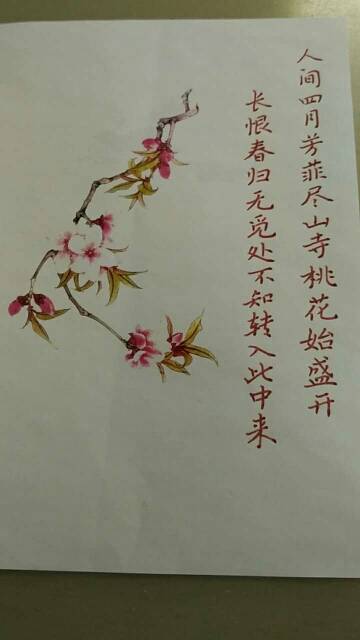 人间四月芳菲尽山寺桃花始盛开
长恨春归无觅处不知转入此中来